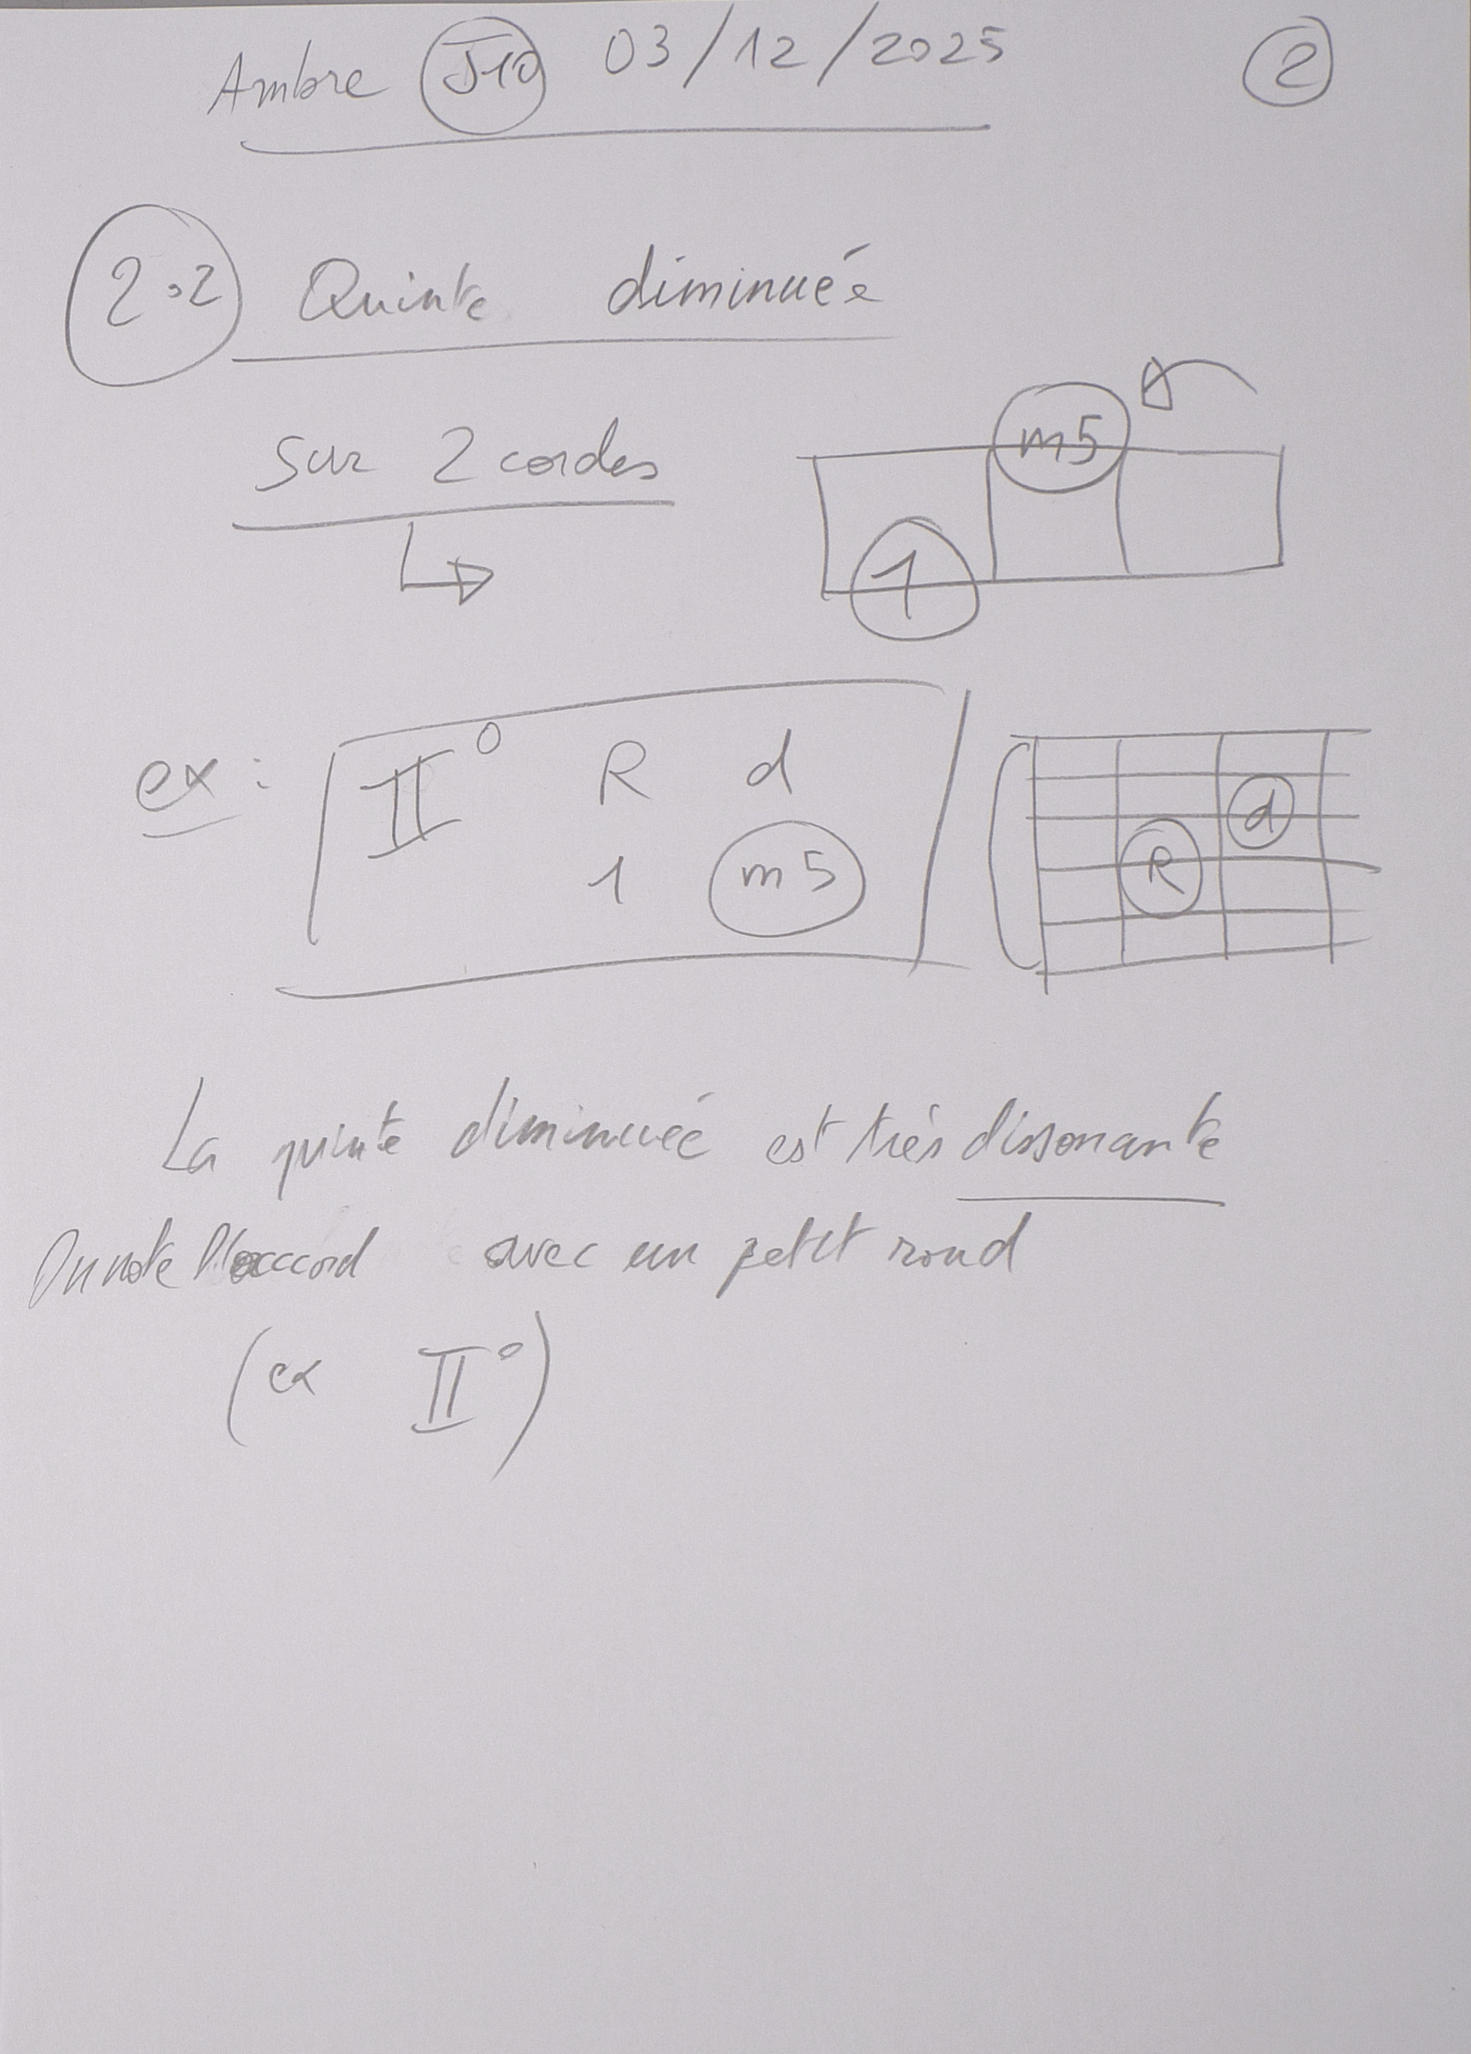 Ambre J10 03/12/2025 2
2.2 Quinte diminuée
sur 2 cordes
m5
1
ex: II° R d
1 m5
d
R
La quinte diminuée est très dissonante
On note l'accord avec un petit rond
(ex II°)